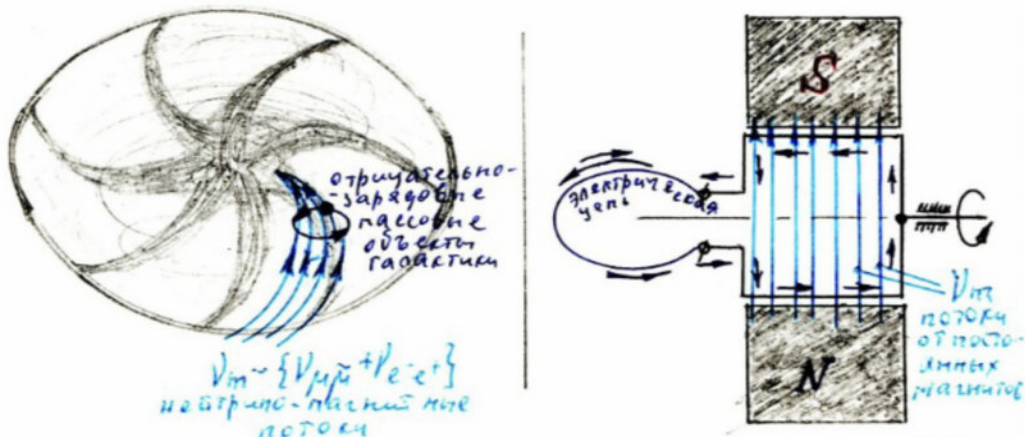 отрицательно-
-зарядовые
массовые
объекты
галактики
νm ~ {νμμ̃ + νe⁻e⁺}
нейтрино-магнитные
потоки
S
электрическая
цепь
N
νm
потоки
от посто-
янных
магнитов